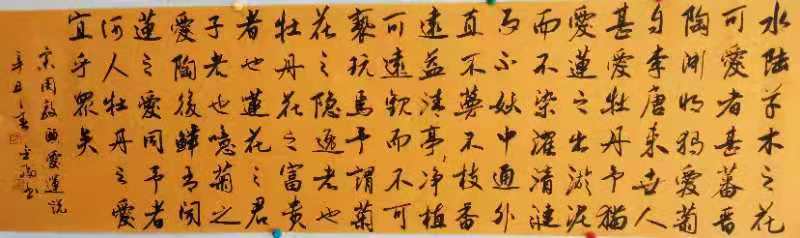 水陸草木之花
可愛者甚蕃晋
陶渊明独爱菊
自李唐来世人
甚愛牡丹予独
愛蓮之出淤泥
而不染濯清漣
而不妖中通外
直不蔓不枝香
遠益清亭々净植
可遠观而不可
亵玩焉予謂菊
花之隐逸者也
牡丹花之富貴
者也蓮花之君
子者也噫菊之
愛陶後鮮有闻
蓮之愛同予者
何人牡丹之愛
宜乎眾矣
宋周敦頤愛蓮说
辛丑春